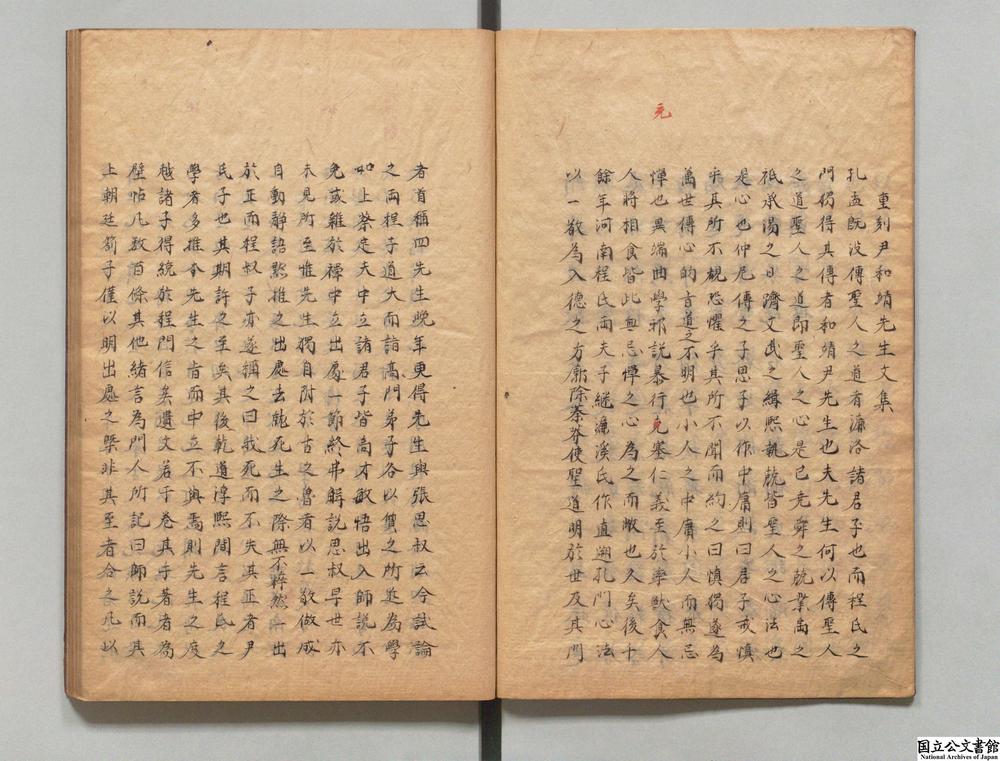 重刻尹和靖先生文集
孔孟既没傳聖人之道有濂洛諸君子也而程氏之
門獨得其傳者和靖尹先生也夫先生何以傳聖人
之道聖人之道即聖人之心是已堯舜之兢業禹之
祇承湯之日躋文武之緝熙執兢皆聖人之心法也
是心也仲尼傳之子思子以作中庸則曰君子戒慎
乎其所不覩恐懼乎其所不聞而約之曰慎獨遂為
萬世傳心的言道之不明也小人之中庸小人而無忌
憚也異端曲學邪說暴行充塞仁義至於率獸食人
人將相食皆此無忌憚之心為之而敝也久矣後千
餘年河南程氏兩夫子繼濂溪氏作直遡孔門心法
以一敬為入德之方廓除榛莽使聖道明於世及其門
者首稱四先生晚年更得先生與張思叔云今試論
之兩程子道大而詣高門弟子各以質之所近為學
如上蔡定夫中立諸君子皆高才敏悟出入師說不
免或雜於禪中立出處一節終弗解說思叔早世亦
未見所至惟先生獨自附於古之魯者以一敬做成
自動靜語默推之出處去就死生之際無不粹然一出
於正而程叔子亦遂稱之曰我死而不失其正者尹
氏子也其期許之至矣其後乾道淳熙間言程氏之
學者多推今先生之旨而中立不與焉則先生之度
越諸子得統於程門信矣遺文若干卷其手著者為
壁帖凡數百條其他緒言為門人所記曰師說而其
上朝廷箚子僅以明出處之槩非其至者合之凡以
元
国立公文書館
National Archives of Japan